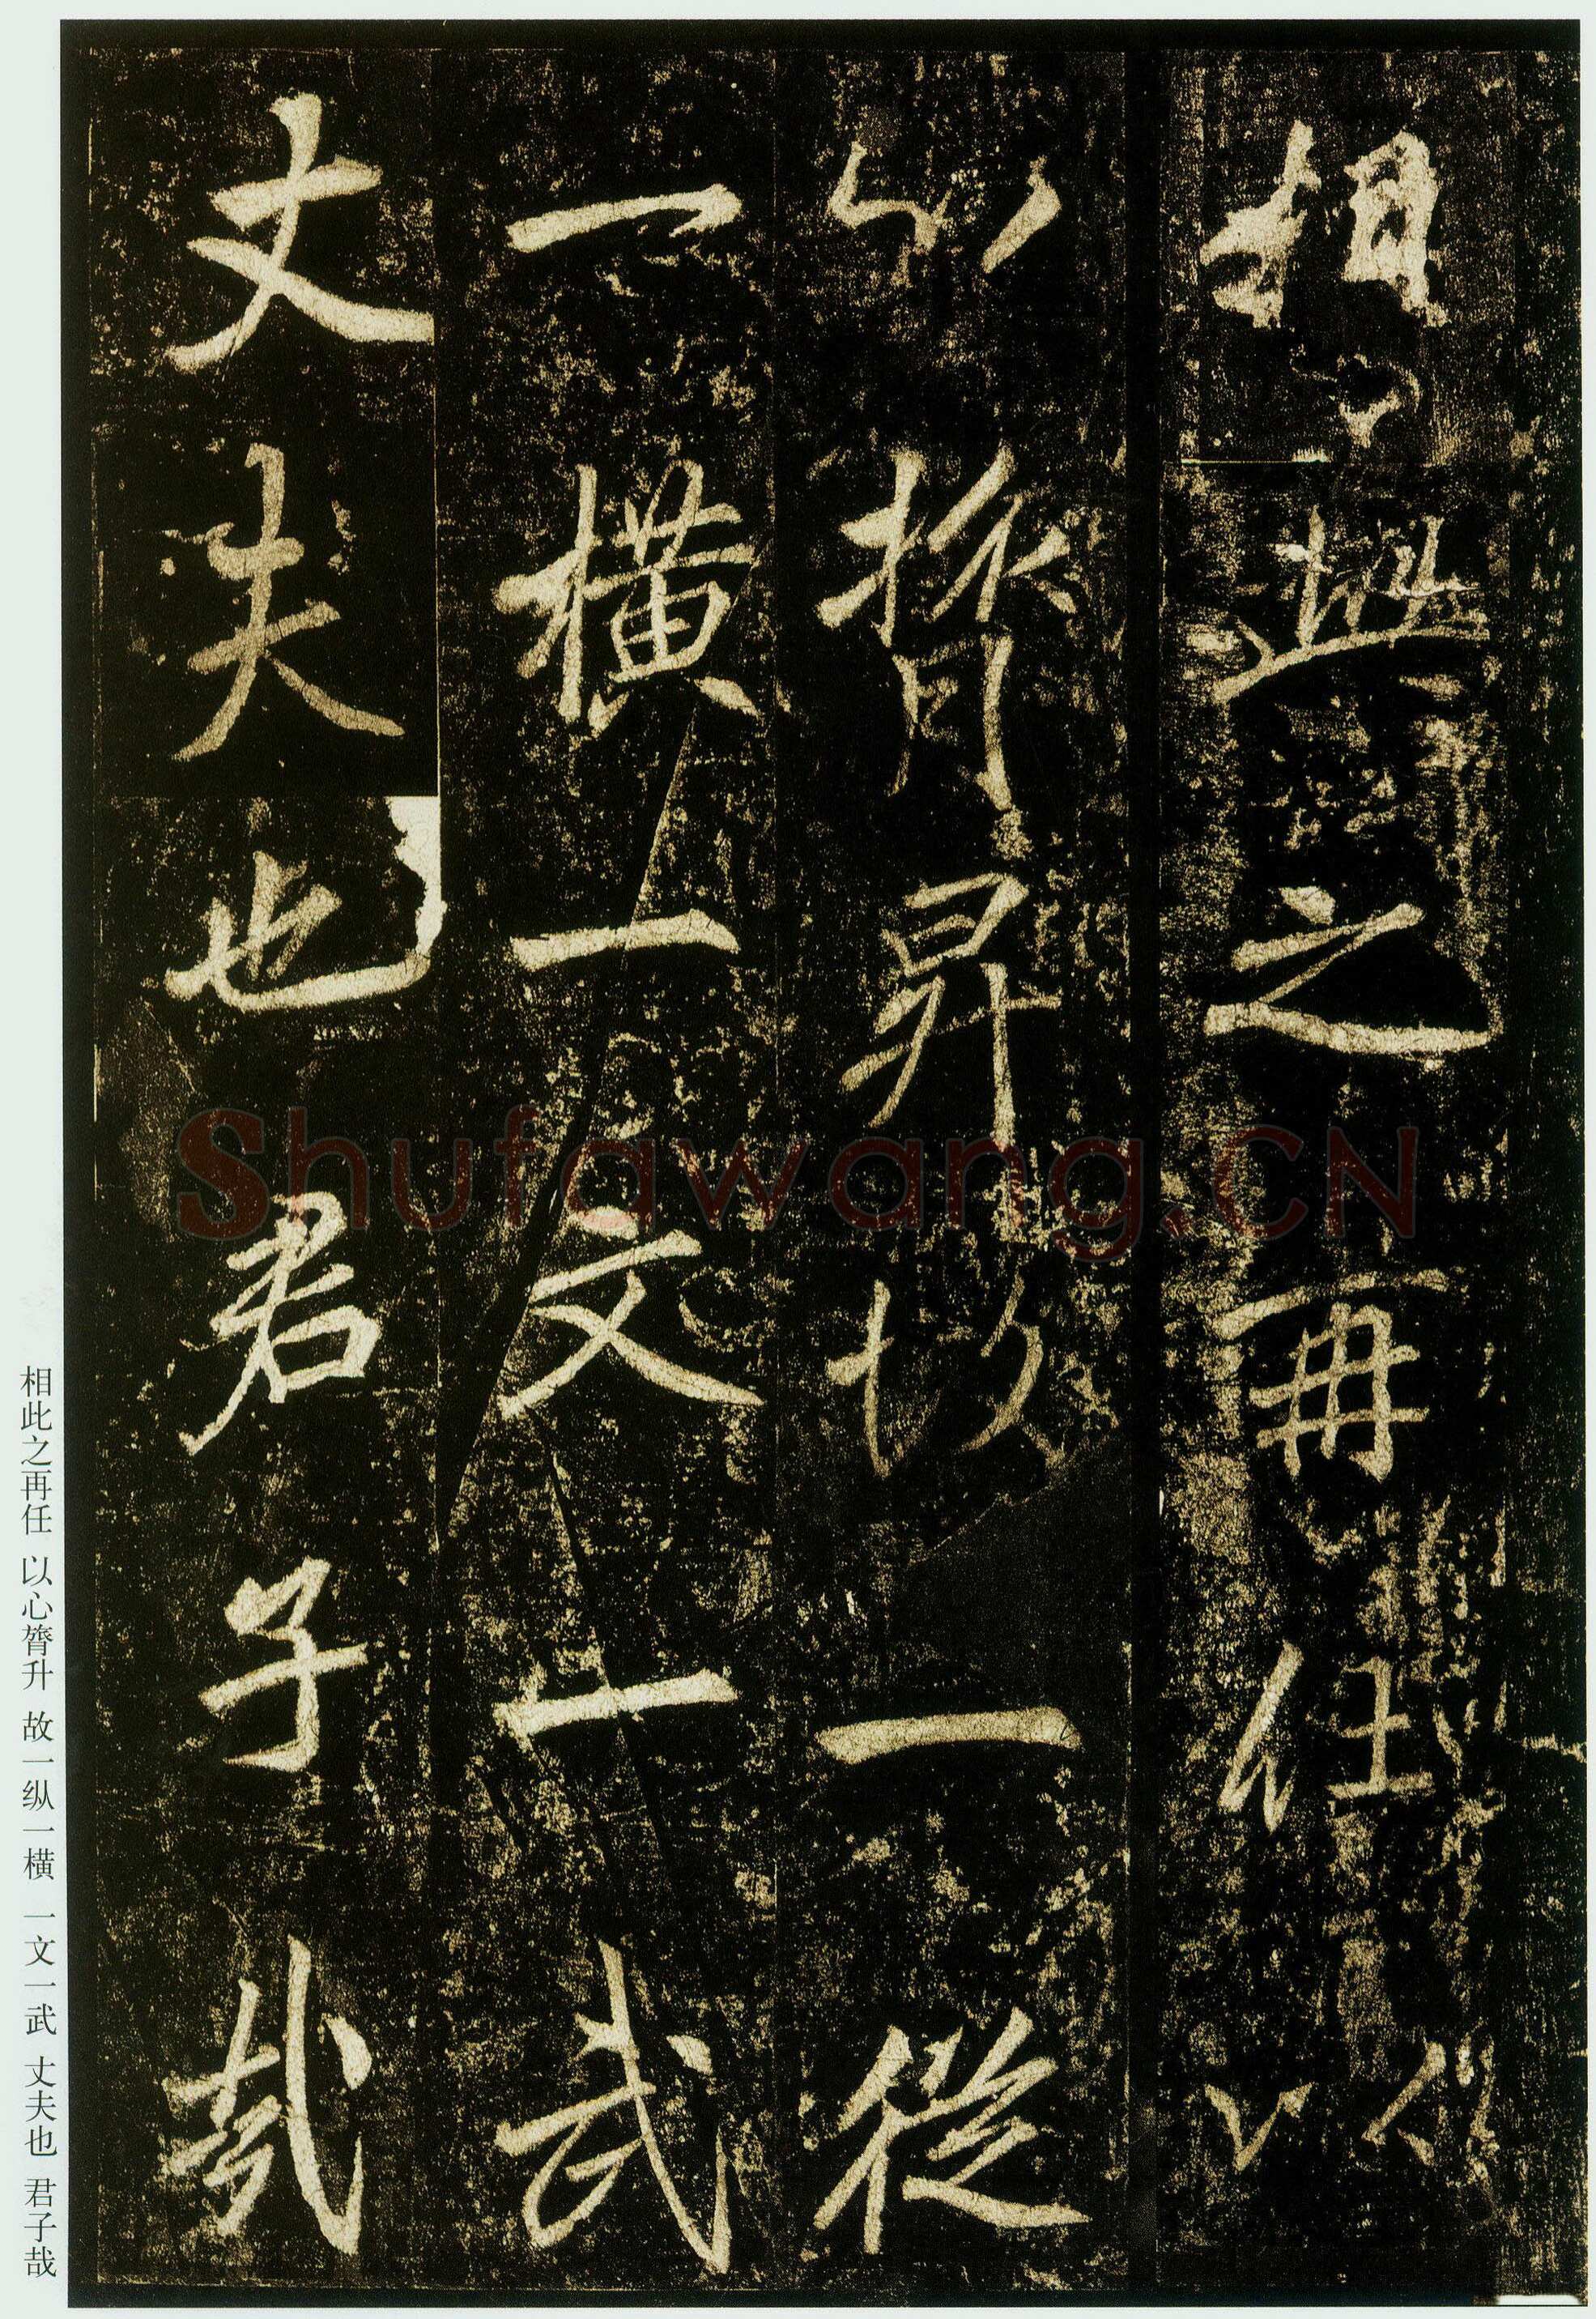 相此之再任以
心膂昇故一從
一橫一文一武
丈夫也君子哉
相此之再任 以心膂升 故一纵一横 一文一武 丈夫也 君子哉
Shufawang.CN